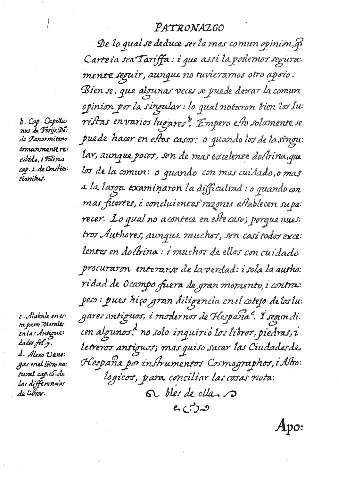 PATRONALGO
De lo qual se deduce ser la mas comun opinion, q̃
Carteia sea Tariffa: i que assi la podemos segura-
mente seguir, aunque no tuvieramos otro apoio.
Bien se. que algunas veces se puede dexar la comun
opinion por la singular: lo qual notaron bien los Iu-
ristas en varios lugares b. Empero esto solamente se
puede hacer en estos casos: o quando los de la singu-
lar, aunque pocos, son de mas excelente doctrina, que
los de la comun: o quando con mas cuidado, o mas
a la larga examinaron la difficultad: o quando con
mas fuertes, i concluientes razones establecen su pa-
recer. Lo qual no acontece en este caso; porque nues-
tros Authores, aunque muchos, son casi todos exce-
lentes en doctrina: i muchos de ellos con cuidado
procuraron enterarse de la verdad: i sola la autho-
ridad de Ocampo fuera de gran momento, i contra-
peso: pues hiço gran diligencia en el cotejo de los lu-
gares antiguos, i modernos de Hespaña c. I segun di-
cen algunos d no solo inquirio los libros, piedras, i
letreros antiguos; mas quiso sacar las Ciudades de
Hespaña por instrumentos Cosmographos, i Astro-
logicos, para conciliar las cosas nota-
bles de ella
Apo:
b. Cap. Capellanus de Ferijs,
cap. 1. de Constitutionibus.
c. Matale en
Morales
en las Antigue-
dades fol. 9.
d. Alexo Vene-
gas en el libro na-
tural cap. 16. de
las differencias
de libros.